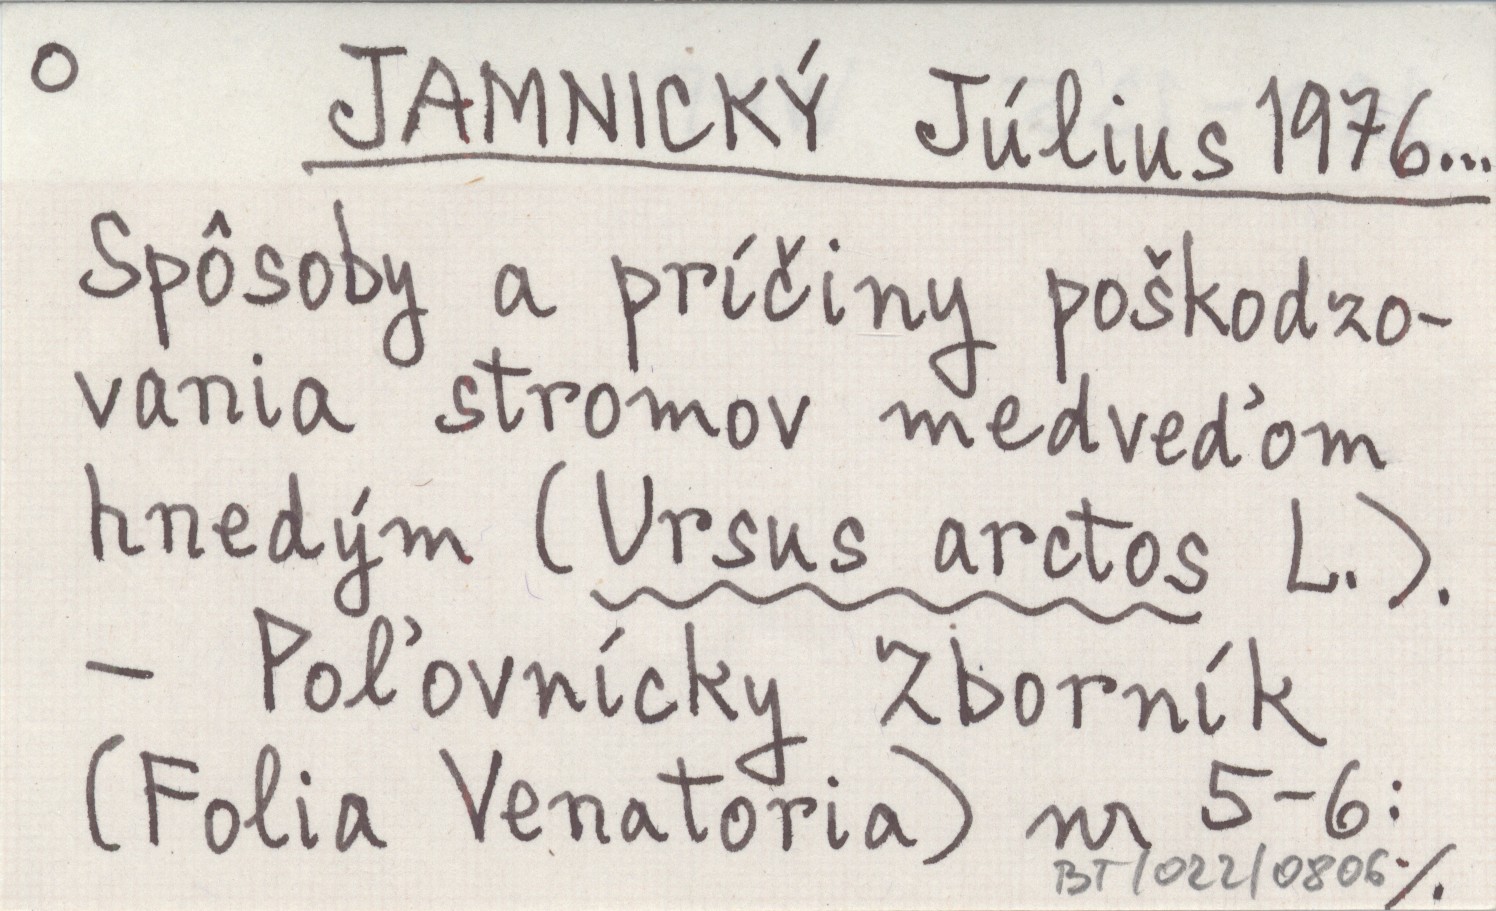 o JAMNICKÝ Július 1976...
Spôsoby a príčiny poškodzo-
vania stromov medveďom
hnedým (Ursus arctos L.).
– Poľovnícky Zborník
(Folia Venatoria) nr 5-6:
BT/022/0806 ·/.